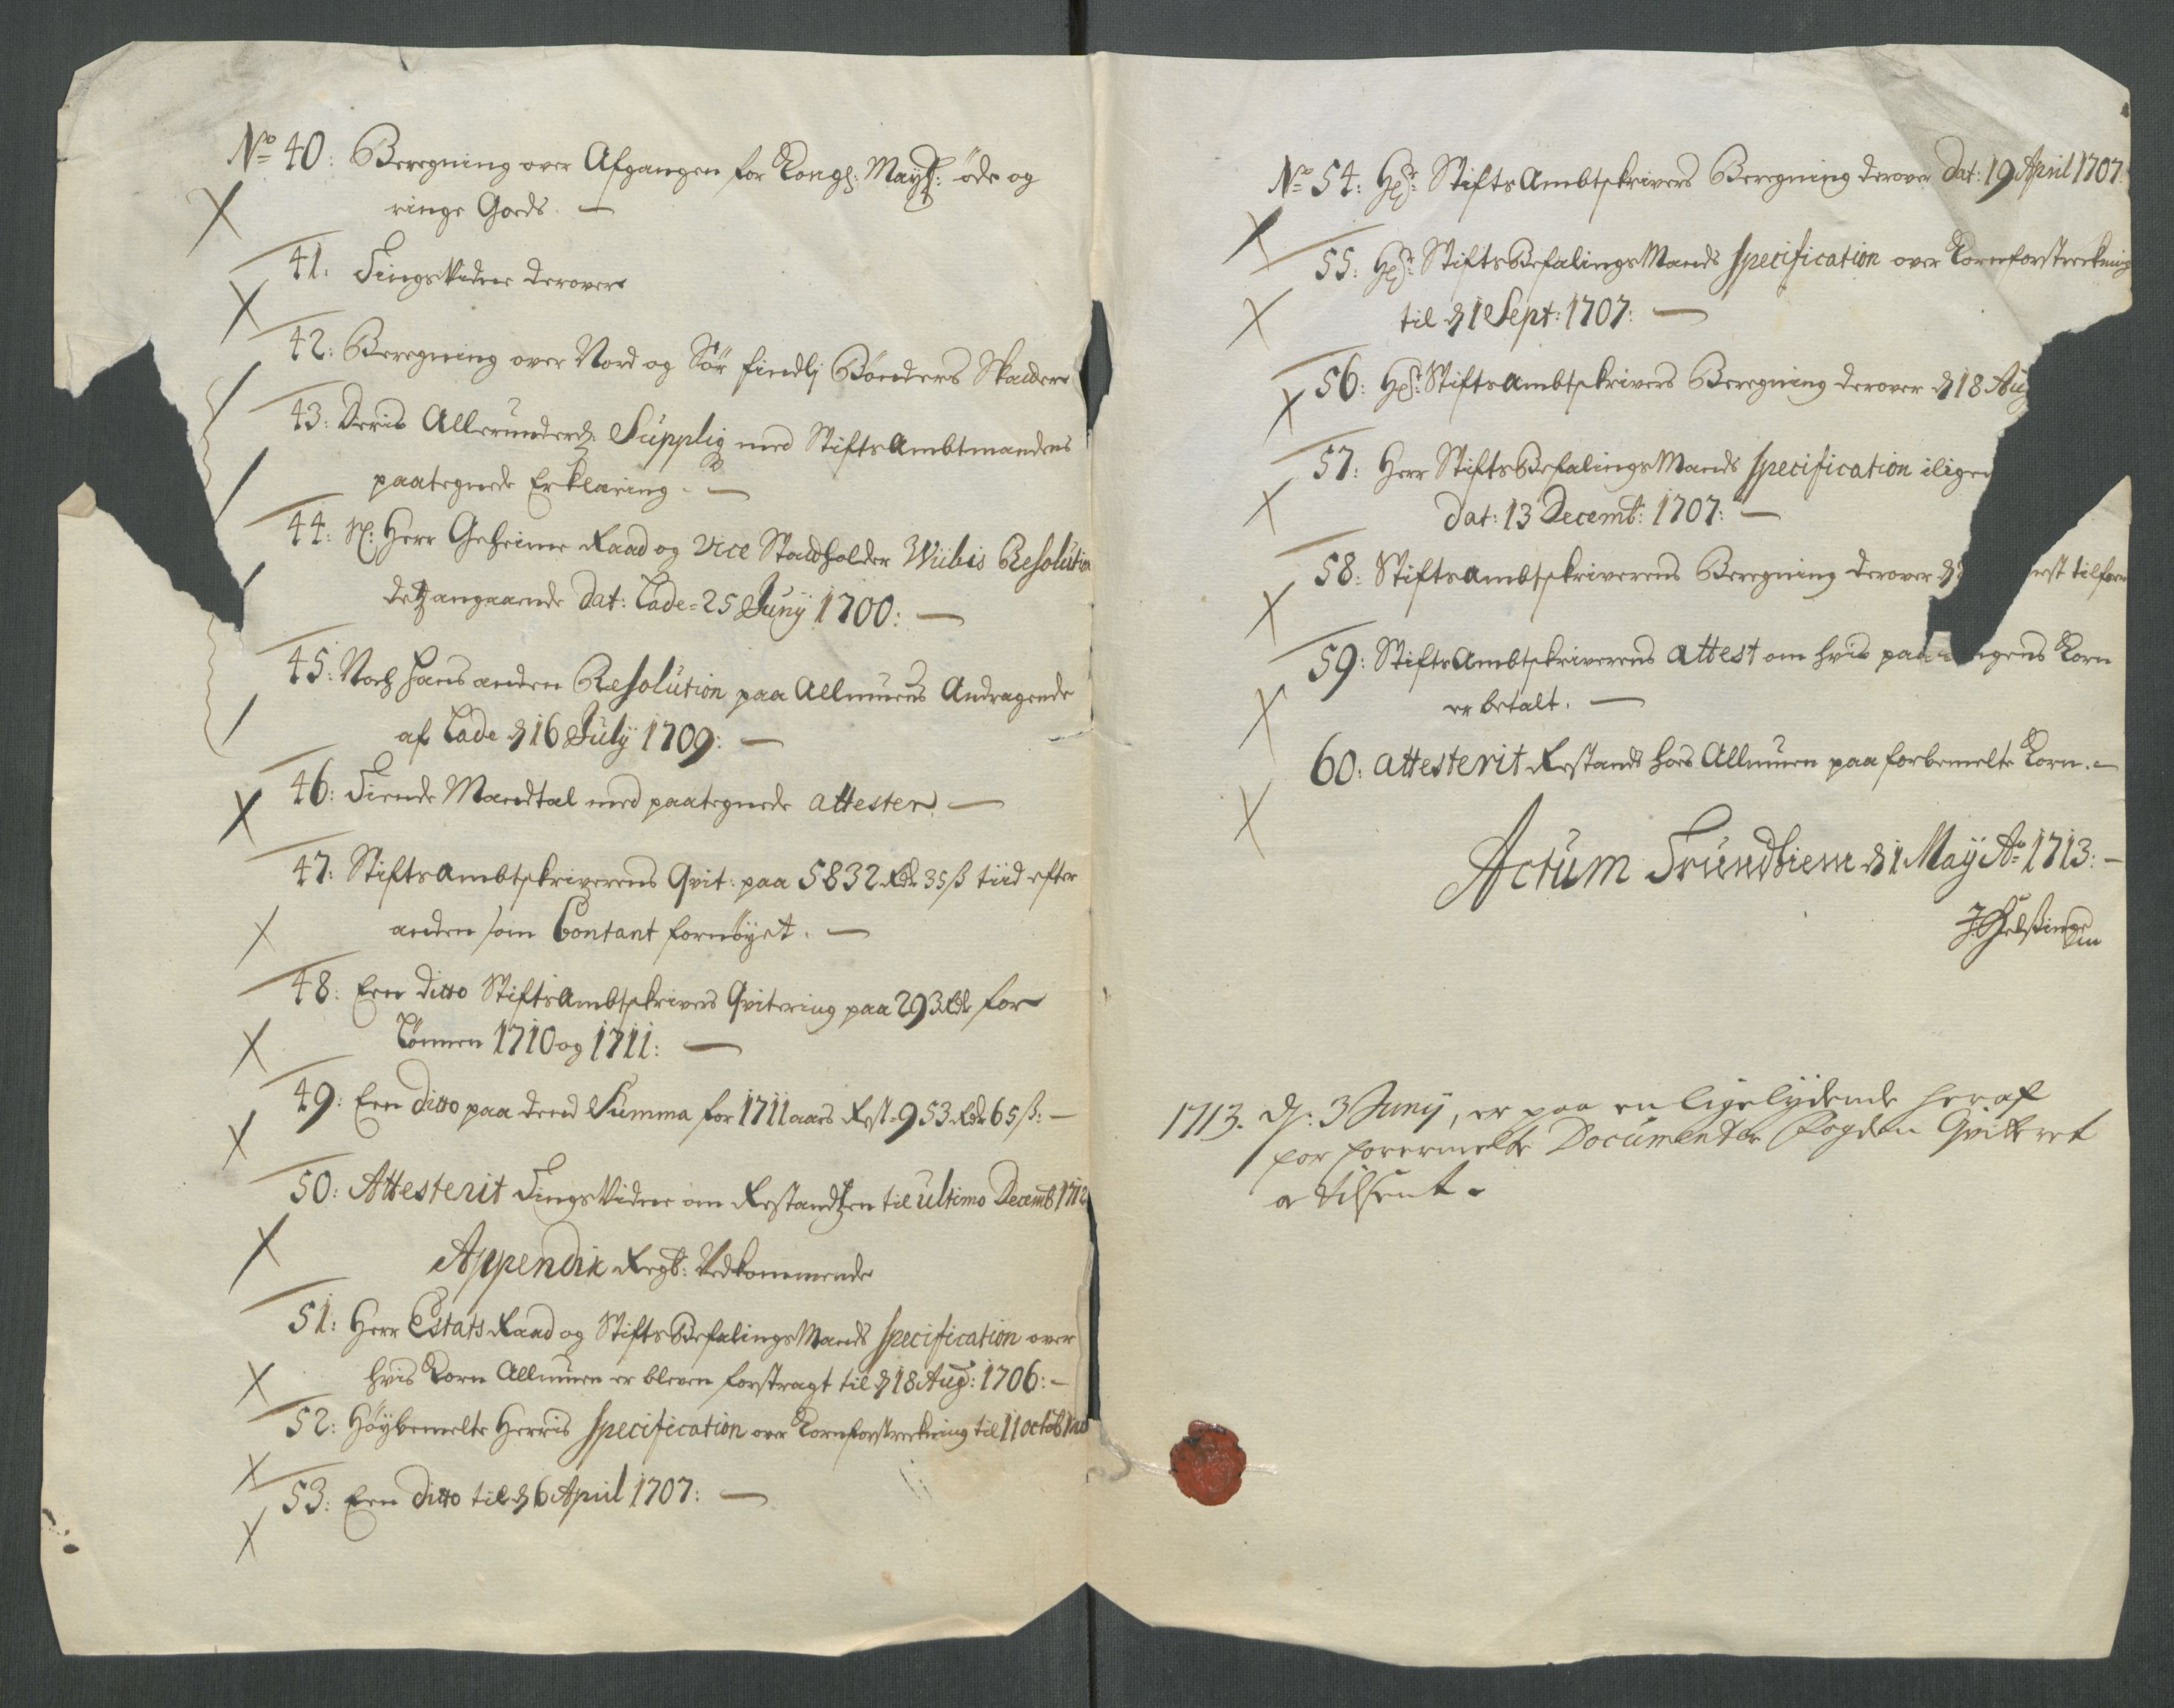 No 40: Beregning over Afgangen for Kongl: Mayts: öde og
ringe Goeds. —
41: TingsVidne derover
42: Beregning over Nord og Sör findlj Bönders Skatter
43: Deris Allerunderd: Supplig med StiftsAmbtmandens
paategnede Erklæring. —
44: Sl: Herr Geheime Raad og Vice Stadtholder Wiibis Resolution
det angaaende dat: Lade 25 Junij 1700: —
45: Noch hans anden Resolution paa Allmuens Andragende
af Lade d 16 Julij 1709: —
46: Tiende Mandtal med paategnede attester —
47: StiftsAmbtskriverens Qvit: paa 5832 Rdr 35 ß tiid efter
anden som Contant fornöyet. —
48: Een ditto StiftsAmbtskrivers Qvitering paa 293 Rdr for
Lönnen 1710 og 1711: —
49: Een ditto paa deend Summa for 1711 aars Rest 953 Rdr 65 ß: —
50: Attesterit TingsVidne om Restandzen til ultimo Decemb 1712
Appendix Regb: Vedkommende
51: Herr Estats Raad og StiftsBefalingsMands specification over
hvis Korn Allmuen er bleven forstragt til d 18 Aug: 1706: —
52: Höybemelte Herris specification over Kornforstrekning til 11 octob
53: Een ditto til d 6 April 1707: —
No 54: StiftsAmbtskrivers Beregning derover dat: 19 April 1707
55: StiftsBefalingsMands specification over Kornforstrekning
til d 1 Sept: 1707: —
56: StiftsAmbtskrivers Beregning derover d 18 Aug
57: Herr StiftsBefalingsMands specification
dat: 13 Decemb: 1707: —
58: StiftsAmbtskriverens Beregning derover d
59: StiftsAmbtskriverens attest om hvis Korn
er betalt. —
60: attesterit Restands hoes Allmuen paa forbemelte Korn. —
Actum Trundhiem d 1 Maij Ao 1713: —
1713. d: 3 Junij, er paa en ligelydende heraf
for forermelte Documenter Fogden Qvitteret
a tilsent.